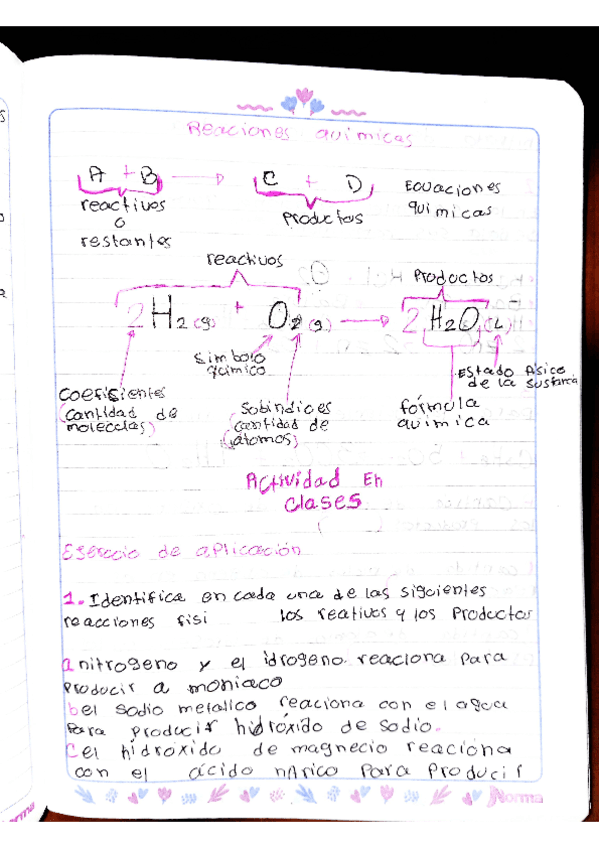 Reaciones quimicas
A + B → C + D Ecuaciones quimicas
reactivos o restantes
Productos
reactivos
Productos
2H2(g) + O2(g) → 2H2O(L)
Simbolo quimico
Estado fisico de la sustancia
Coefisientes (cantidad de moleculas)
Sobindices (cantidad de átomos)
fórmula quimica
Actividad En
clases
Esercicio de aplicación
1. Identifica en cada una de las siguientes
reacciones fisi los reativos y los Productos
a nitrogeno y el idrogeno reaciona Para
Producir a moniaco
b el sodio metalico reaciona con el agua
Para producir hidróxido de sodio.
C el hidróxido de magnecio reaciona
con el ácido nitrico Para Producir
Norma